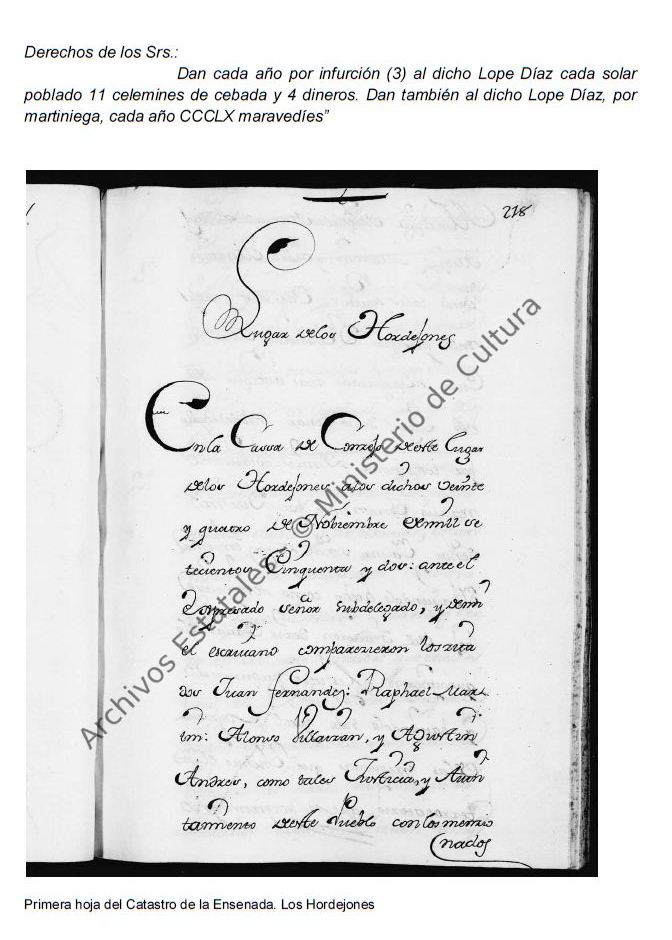 Derechos de los Srs.:
Dan cada año por infurción (3) al dicho Lope Díaz cada solar
poblado 11 celemines de cebada y 4 dineros. Dan también al dicho Lope Díaz, por
martiniega, cada año CCCLX maravedíes”
218
Lugar delos Hordejones
En la Cassa de Conzejo deste lugar
delos Hordejones, alos dichos veinte
y quatro de Nobiembre de mill se
tecientos Cinquenta y dos: ante el
Espresado señor subdelegado, y de mi
el escriuano comparezieron los zita
dos Juan fernandez: Raphael Mar
tin: Alonso Villarzan, y Agustin
Andres, como tales Justicia, y Aiun
tamiento deste Pueblo con los menzio
nados
Archivos Estatales © Ministerio de Cultura
Primera hoja del Catastro de la Ensenada. Los Hordejones